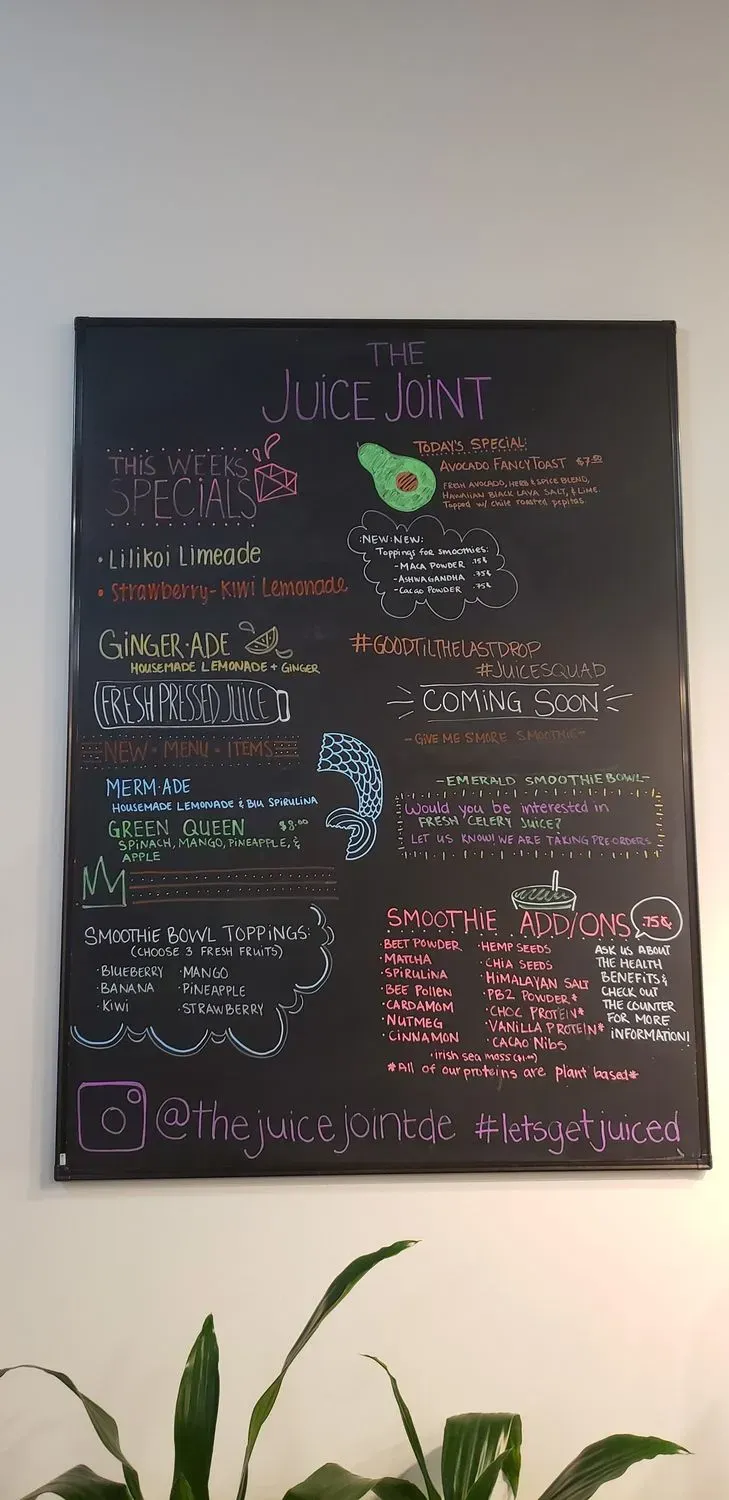 THE
JUICE JOINT
THIS WEEKS
SPECIALS
• Lilikoi Limeade
• Strawberry-Kiwi Lemonade
GINGER·ADE
HOUSEMADE LEMONADE + GINGER
FRESH PRESSED JUICE
NEW · MENU · ITEMS
MERM·ADE
HOUSEMADE LEMONADE & BLU SPIRULINA
GREEN QUEEN $8.00
SPINACH, MANGO, PINEAPPLE, &
APPLE
SMOOTHIE BOWL TOPPINGS:
(CHOOSE 3 FRESH FRUITS)
·BLUEBERRY ·MANGO
·BANANA ·PINEAPPLE
·KIWI ·STRAWBERRY
TODAY'S SPECIAL:
AVOCADO FANCY TOAST $7.50
FRESH AVOCADO, HERB & SPICE BLEND,
HAWAIIAN BLACK LAVA SALT, & LIME.
Topped w/ chile roasted pepitas.
:NEW:NEW:
Toppings for smoothies:
-MACA POWDER .75¢
-ASHWAGANDHA .75¢
-CACAO POWDER .75¢
#GOODTILTHELASTDROP
#JUICESQUAD
COMING SOON
-GIVE ME S'MORE SMOOTHIE-
-EMERALD SMOOTHIE BOWL-
Would you be interested in
FRESH CELERY JUICE?
LET US KNOW! WE ARE TAKING PREORDERS
SMOOTHIE ADD/ONS .75¢
·BEET POWDER ·HEMP SEEDS
·MATCHA ·CHIA SEEDS
·SPIRULINA ·HIMALAYAN SALT
·BEE Pollen ·PB2 POWDER*
·CARDAMOM ·CHOC PROTEIN*
·NUTMEG ·VANILLA PROTEIN*
·CINNAMON ·CACAO NIBS
·irish sea moss
*All of our proteins are plant based*
ASK US ABOUT
THE HEALTH
BENEFITS &
CHECK OUT
THE COUNTER
FOR MORE
INFORMATION!
@thejuicejointde #letsgetjuiced